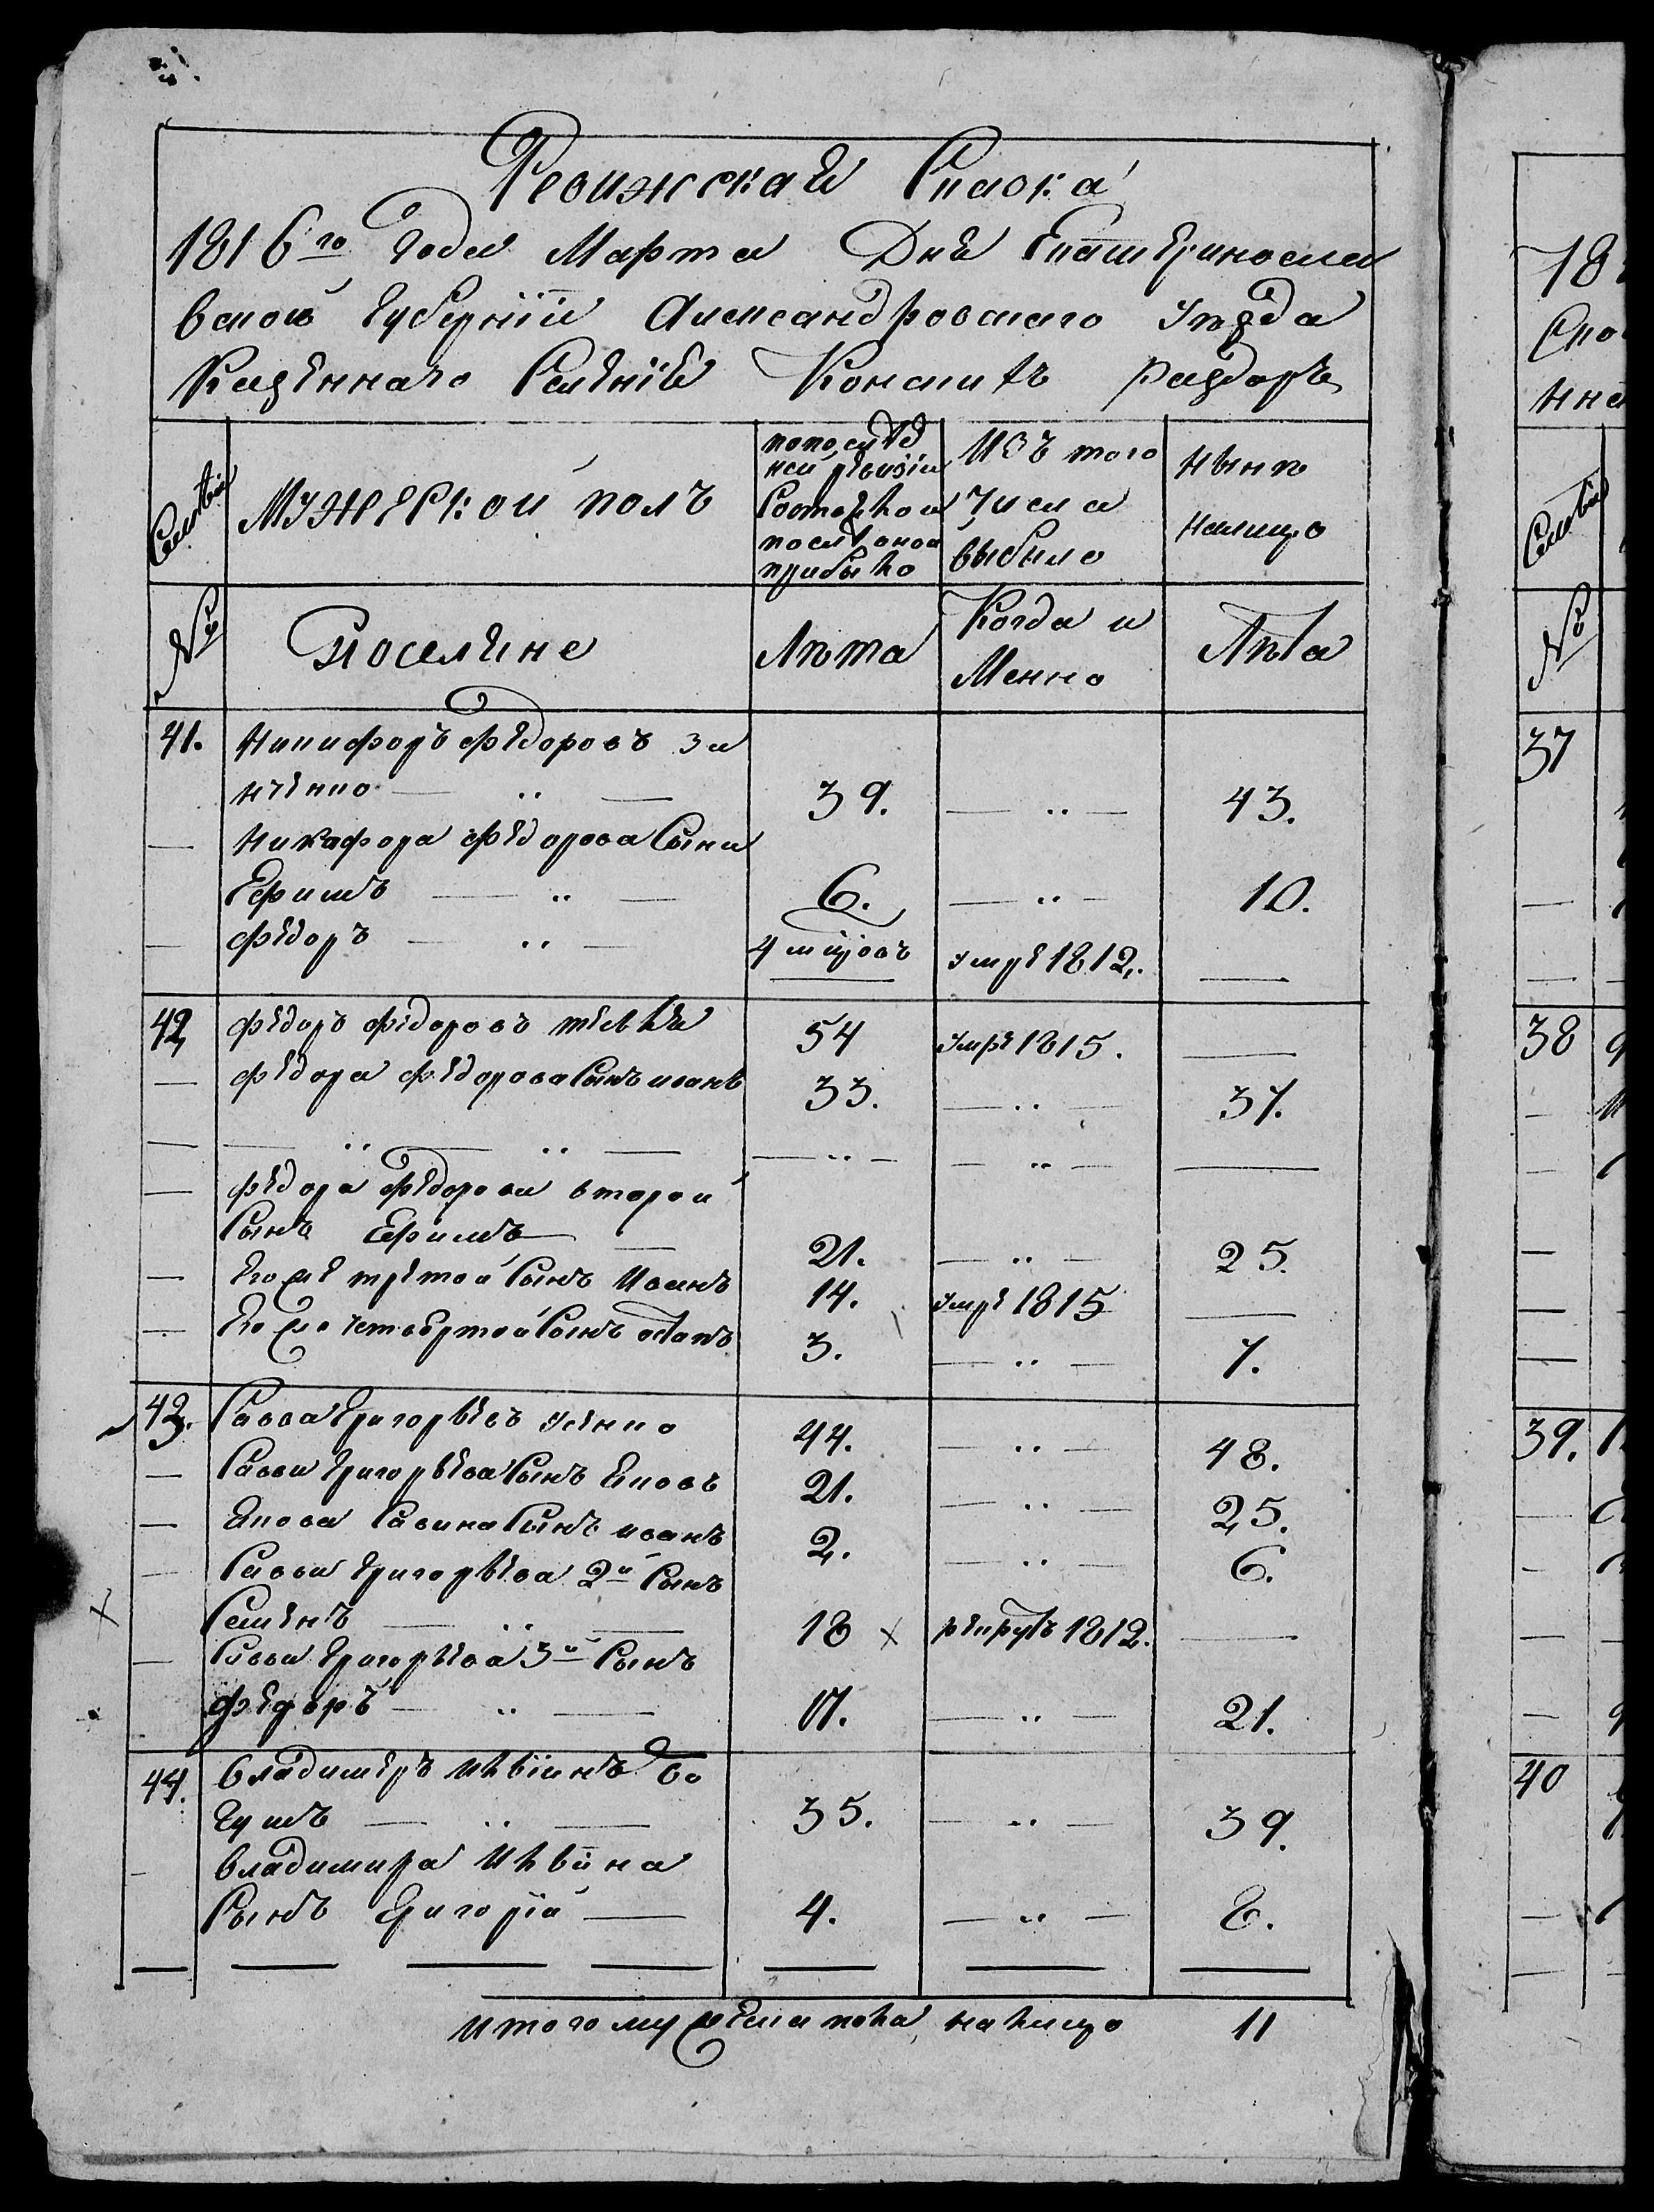 Ревижская Сказка
1816го Года Марта Дня Екатериносла
вской Губерніи Александровскаго Уѣзда
Казеннаго Селенія Конскихъ Раздоръ
Семьи
мужескои полъ
попослѣд
ней ревизіи
Состояло и
послѣ оной
прибыло
Изъ того
Числа
выбыло
нынѣ
налицо
Семьи
№
поселяне
Лѣта
Когда и
Менно
Лѣта
№
41. Никифоръ Федоровъ За
нченко — „ — 39. — „ — 43.
— Никифора Федорова Сыни
Ефимъ — „ — 6. — „ — 10.
— Федоръ — „ — 4 умре 1812. —
42 Федоръ Федоровъ 54 умре 1815. —
— Федора Федорова Сынъ иванъ 33. — „ — 37.
— — „ — „ — — „ — — „ — —
— Федора Федорова второй
Сынъ Ефимъ — 21. — „ — 25.
— Его же третой Сынъ Иванъ 14. умре 1815 —
— Его же четвертой Сынъ остапъ 3. — „ — 7.
43. Савва Григорьевъ Усенко 44. — „ — 48.
— Саввы Григорьева Сынъ Яковъ 21. — „ — 25.
— Якова Савина Сынъ иванъ 2. — „ — 6.
— Саввы Григорьева 2й Сынъ
Семенъ — „ — 18 х рекрутъ 1812. —
— Саввы Григорьева 3й Сынъ
Федоръ — „ — 17. — „ — 21.
44. Владимеръ Ильинъ Бо
гушъ — „ — 35. — „ — 39.
— Владимира Ильина
Сынъ Григорій — 4. — „ — 8.
итого мужеска пола налицо 11
37
38
39.
40